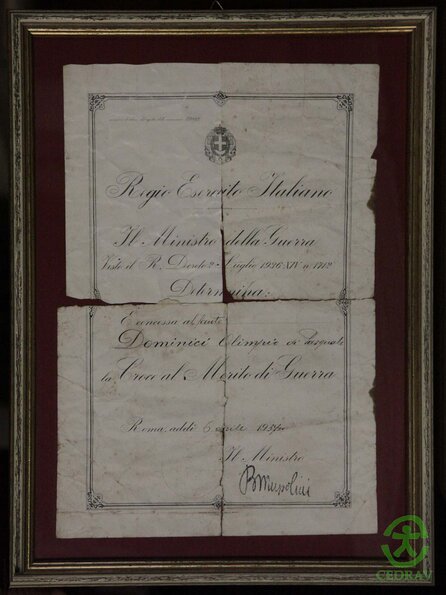 Regio Esercito Italiano
Il Ministro della Guerra
Visto il R. Decreto 2 Luglio 1936 XIV n. 1712
Determina:
E concessa al fante
Dominici Olimpio di Pasquale
la Croce al Merito di Guerra
Roma, addì 6 1937
Il Ministro
BMussolini
CEDRAV